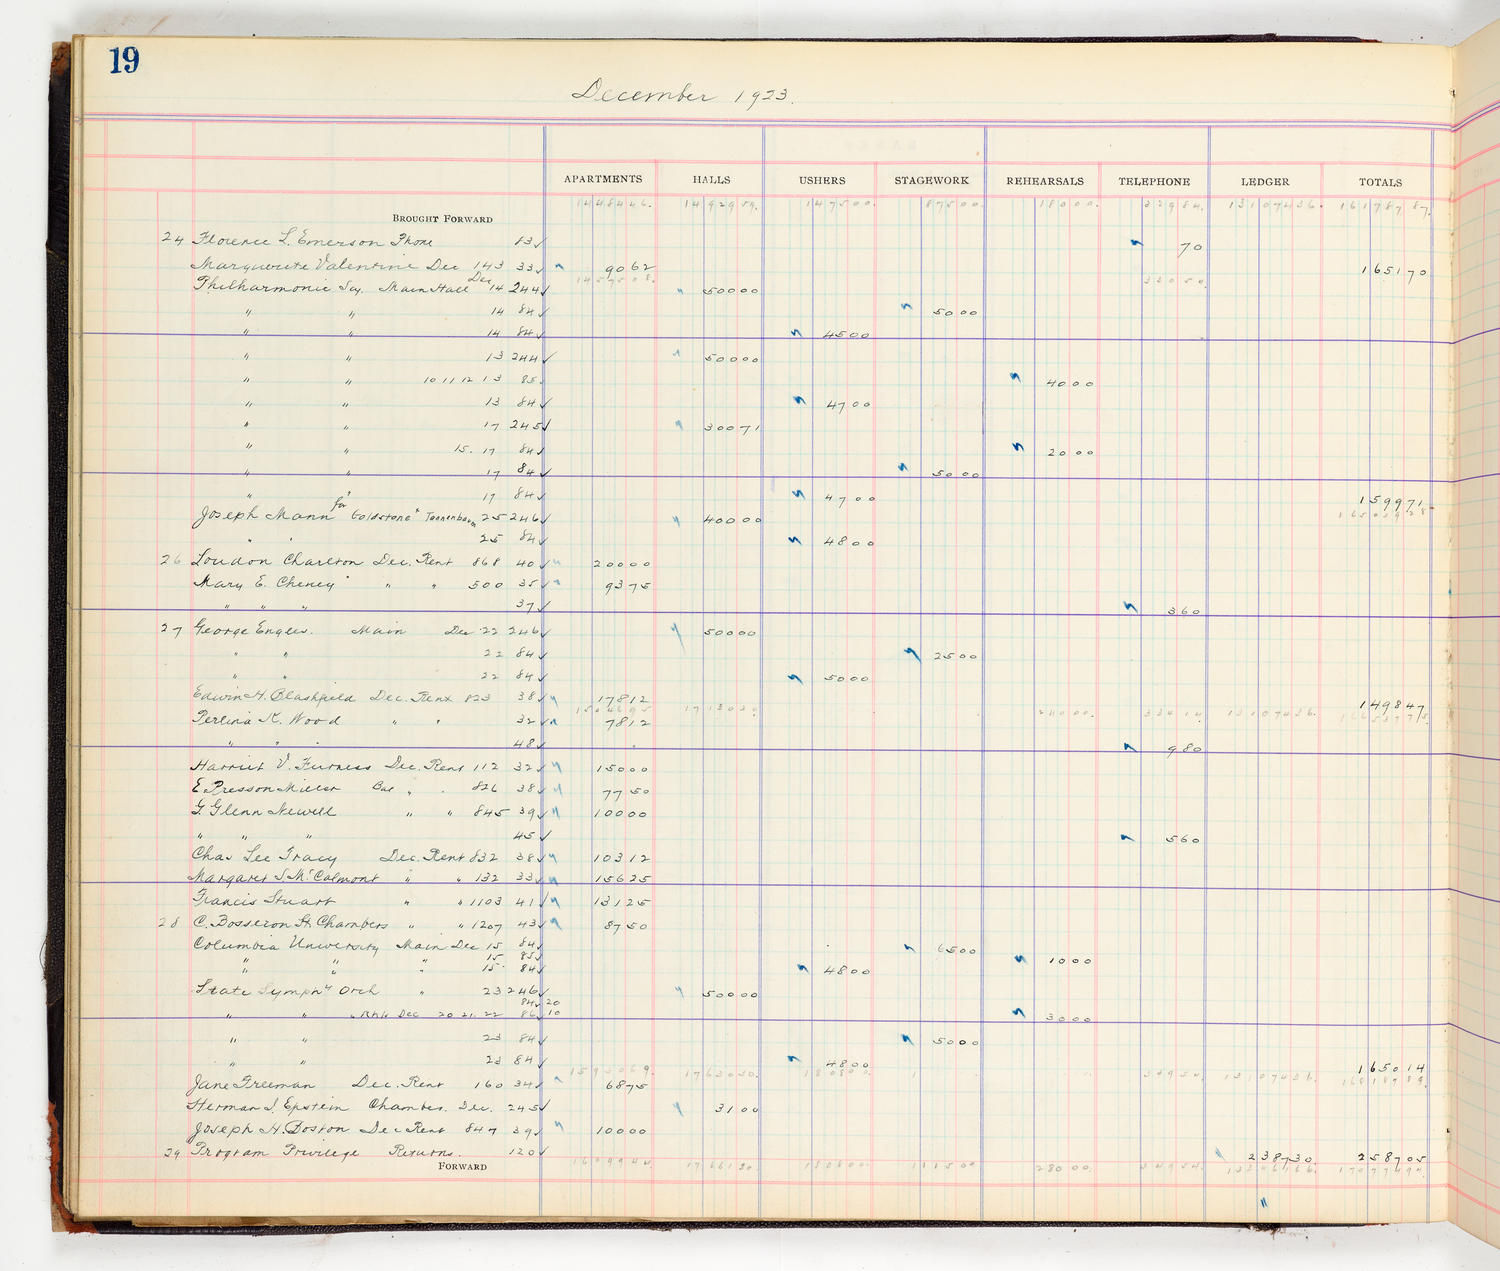 19
December 1923.
APARTMENTS HALLS USHERS STAGEWORK REHEARSALS TELEPHONE LEDGER TOTALS
BROUGHT FORWARD 1448446. 1492959. 147500. 87500. 18000. 32984. 13107436. 16178787.
24 Florence L. Emerson Phone 83 70
Marguerite Valentine Dec 143 33 9062 165170
1457508. 33050.
Philharmonic Soy. Main Hall Dec 14 244 50000
" " 14 84 5000
" " 14 84 4500
" " 13 244 50000
" " 10 11 12 13 85 4000
" " 13 84 4700
" " 17 245 30071
" " 15. 17 84 2000
" " 17 84 5000
" " 17 84 4700 159971
Joseph Mann for Goldstone & Tannenbaum 25 246 40000
" " 25 84 4800
26 Loudon Charlton Dec. Rent 868 40 20000
Mary E. Cheney " " 500 35 9375
" " " 37 360
27 George Engles. Main Dec 22 246 50000
" " 22 84 2500
" " 22 84 5000
Edwin H. Blashfield Dec. Rent 823 38 17812 149847
Perlina K. Wood " " 32 7812
" " " 48 980
Harriet V. Furness Dec. Rent 112 32 15000
E Presson Miller Bal " . 826 38 7750
G. Glenn Newell " " 845 39 10000
" " " 45 560
Chas Lee Tracy Dec. Rent 832 38 10312
Margaret S. McCalmont " " 132 33 15625
Francis Stuart " " 1103 41 13125
28 C. Bosseron Chambers " " 1207 43 8750
Columbia University Main Dec 15 84 6500
" " " 15 85 1000
" " " 15 84 4800
State Symphy Orch " 23 246 50000
84 20
" " " Rhls Dec 20 21. 22 86 10 3000
" " 23 84 5000
" " 23 84 4800 165014
Jane Freeman Dec. Rent 160 34 6875
Herman I. Epstein Chamber. Dec. 245 3100
Joseph H. Boston Dec Rent 847 39 10000
29 Program Privilege Returns. 120 238730 258705
FORWARD